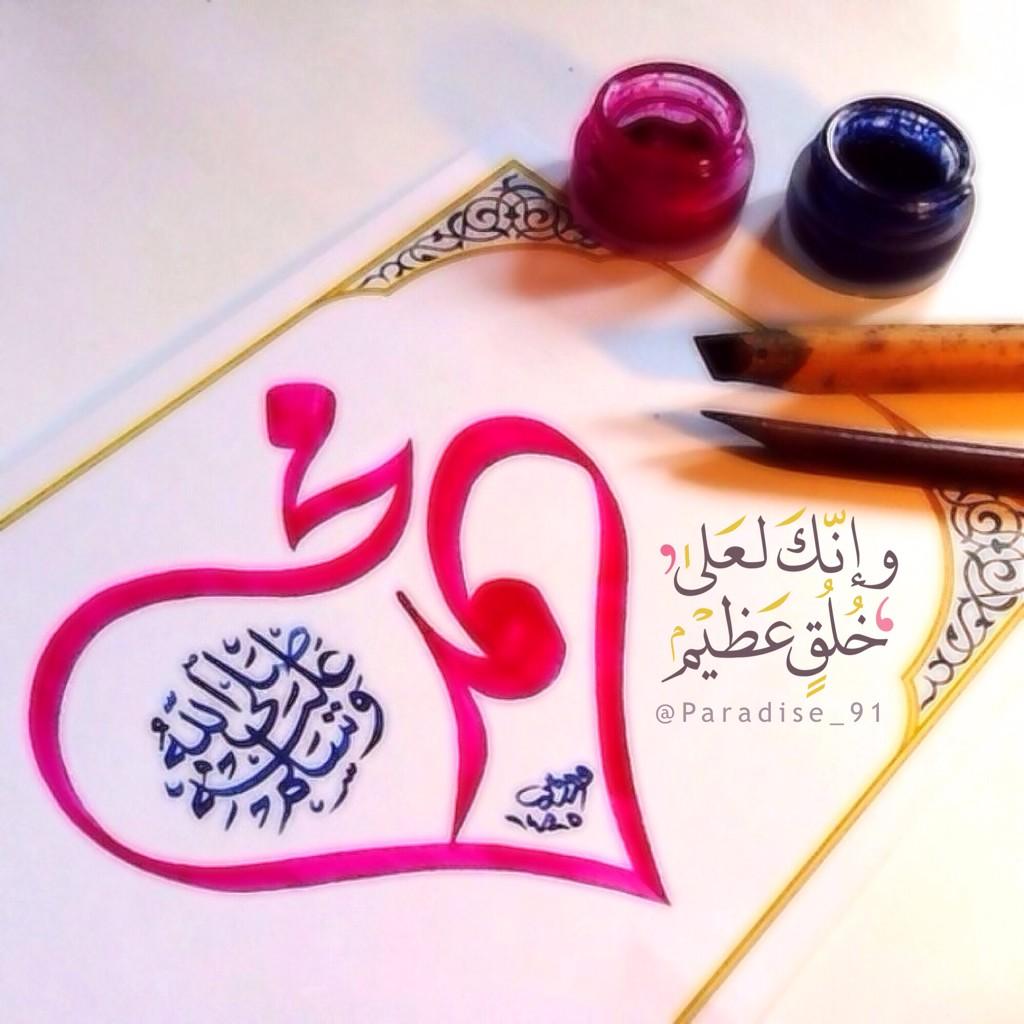 محمد
صلى الله عليه وسلم
وَإِنَّكَ لَعَلَىٰ
خُلُقٍ عَظِيمٍ
@Paradise_91